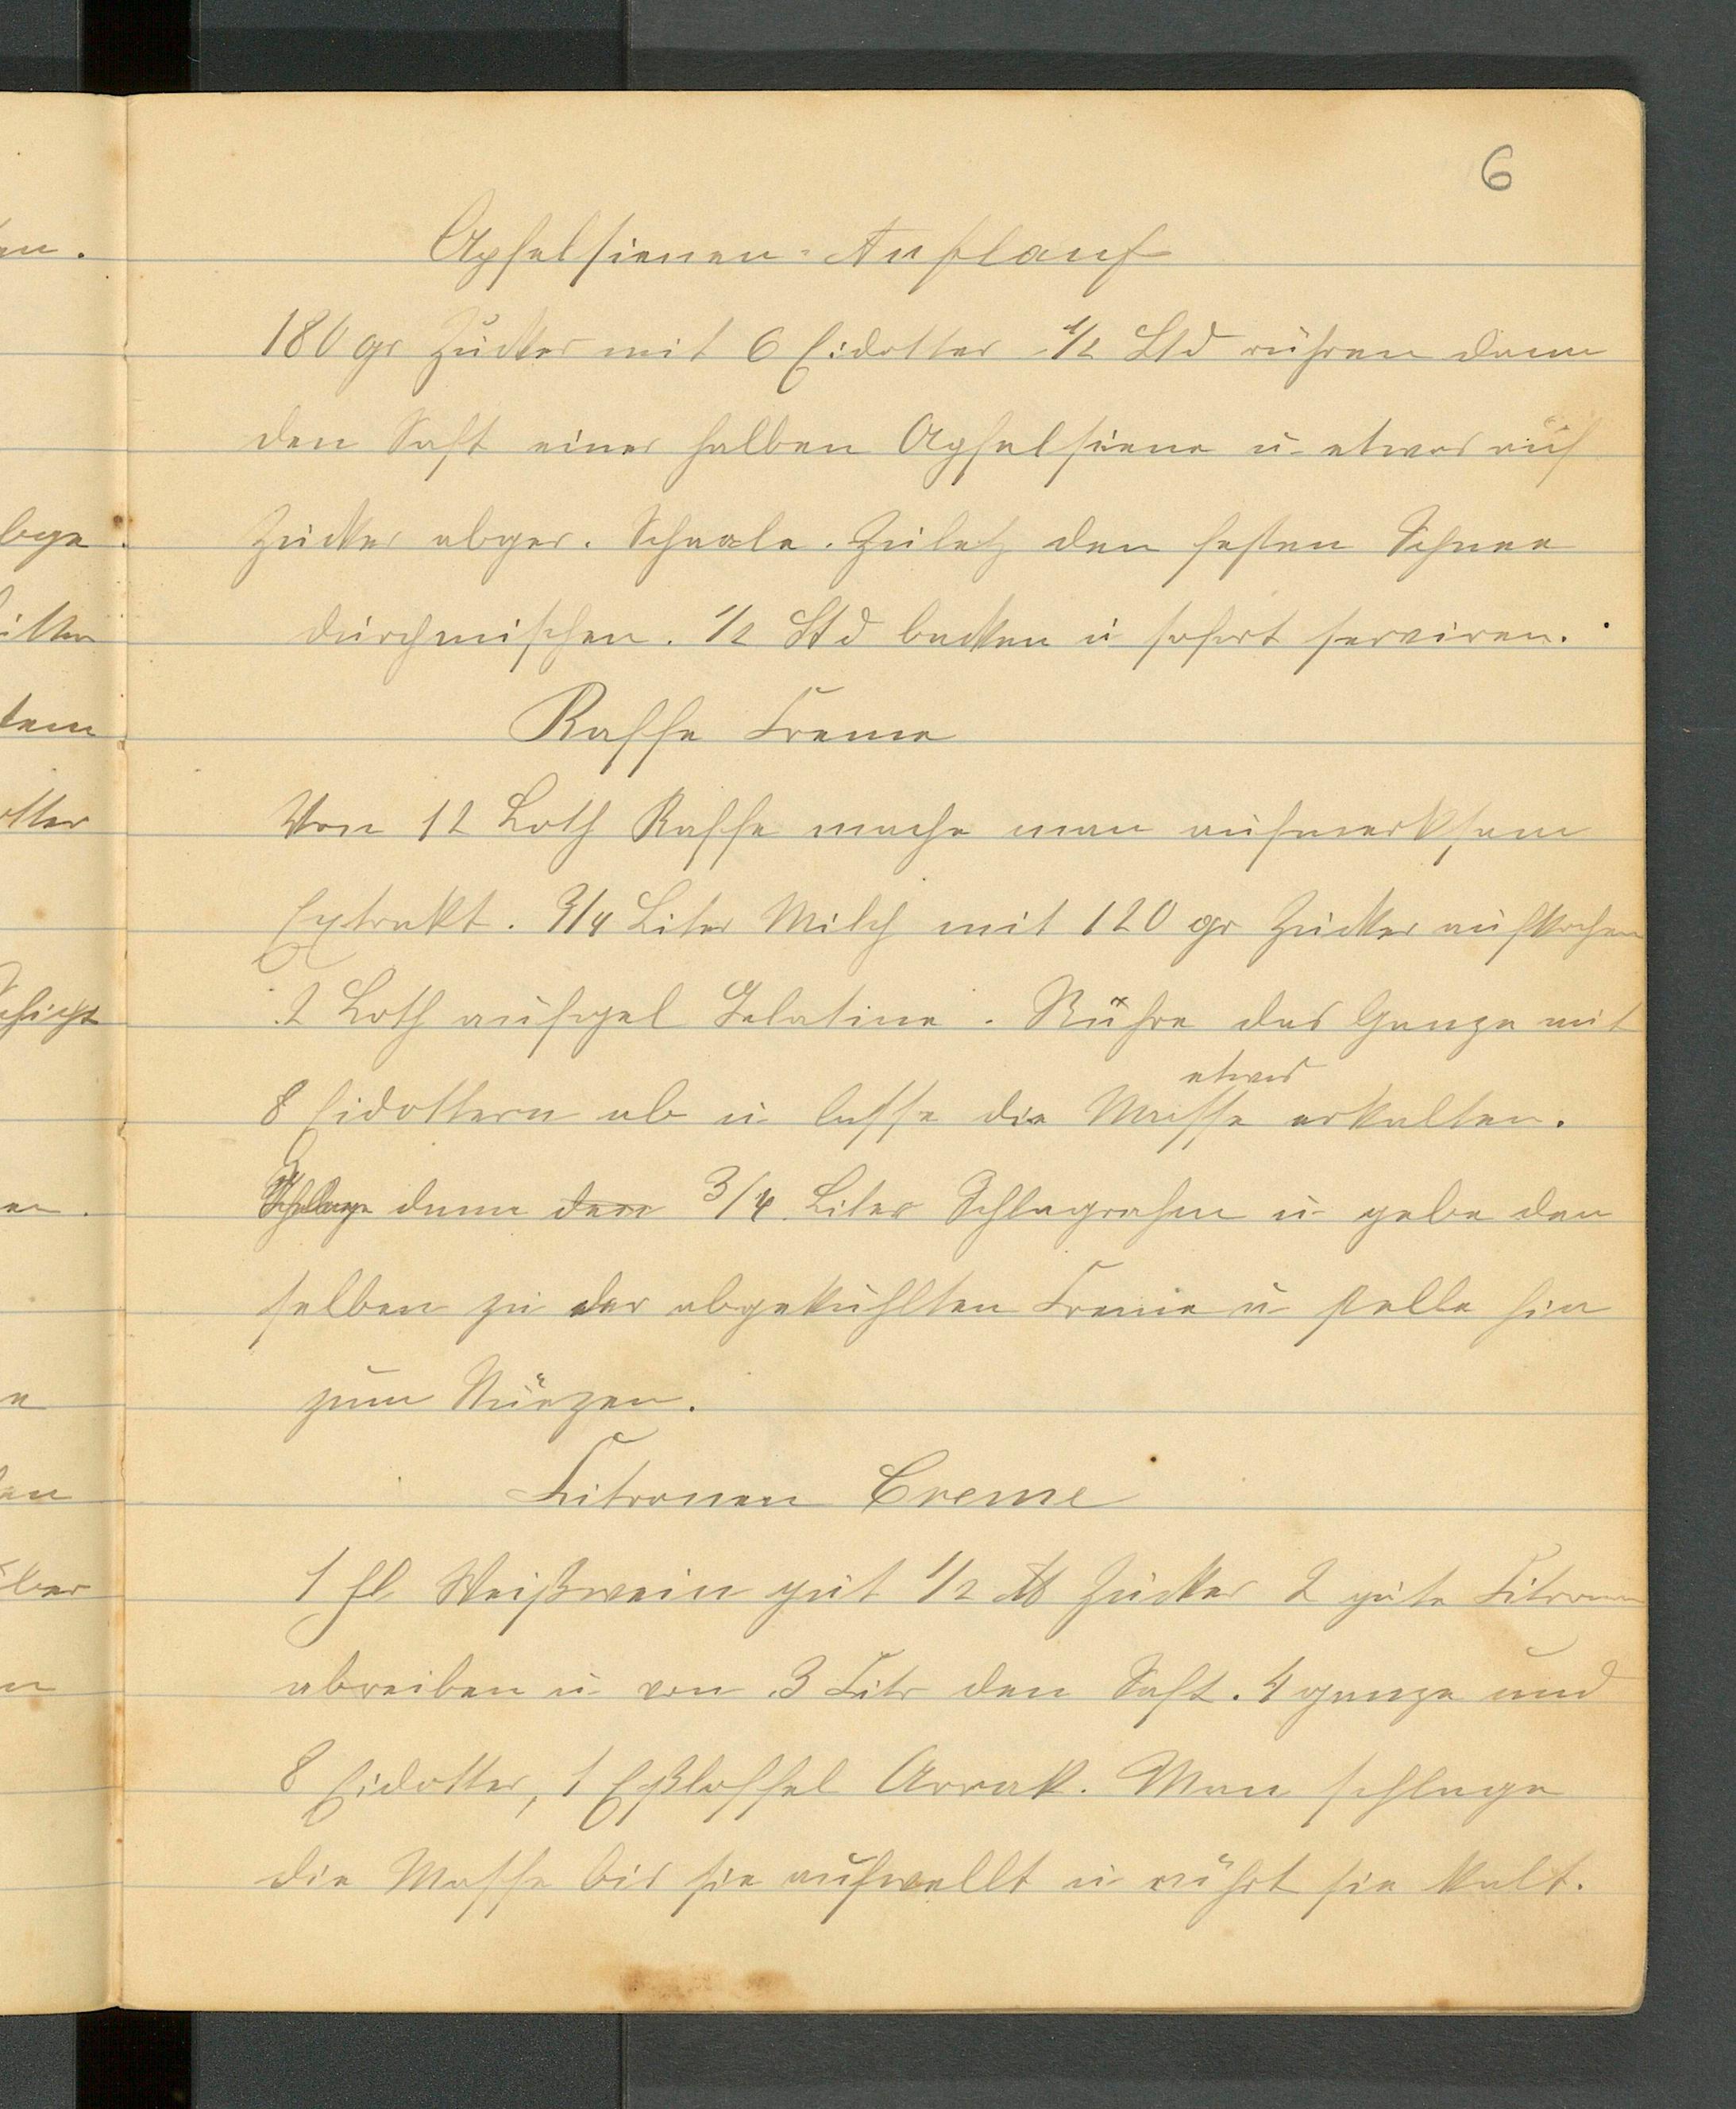 6
Apfelsienen-Auflauf
180 gr Zucker mit 6 Eidotter 1/2 Std rühren dann
den Saft einer halben Apfelsiene u. etwas auf
Zucker abger. Schaale. Zuletz den festen Schnee
durchmischen. 1/2 Std backen u sofort serviren.
Kaffe Creme
Von 12 Loth Kaffe mache man aufmerksam
Extrakt. 3/4 Liter Milch mit 120 gr Zucker aufkochen
2 Loth aufgel Gelatine. Rühre das Ganze mit
etwas
8 Eidottern ab u. lasse die Masse erkalten.
Schlage dann dem 3/4 Liter Schlagrahm u. gebe den
selben zu der abgekühlten Creme u stelle hin
zum Stürzen.
Citronen Creme
1 Fl Weißwein gut 1/2 ℔ Zucker 2 gute Citronen
abreiben u. von 3 Citr den Saft. 4 ganze und
8 Eidotter, 1 Eßloffel Arrak. Man schlage
die Masse bis sie aufwallt u. rührt sie kalt.